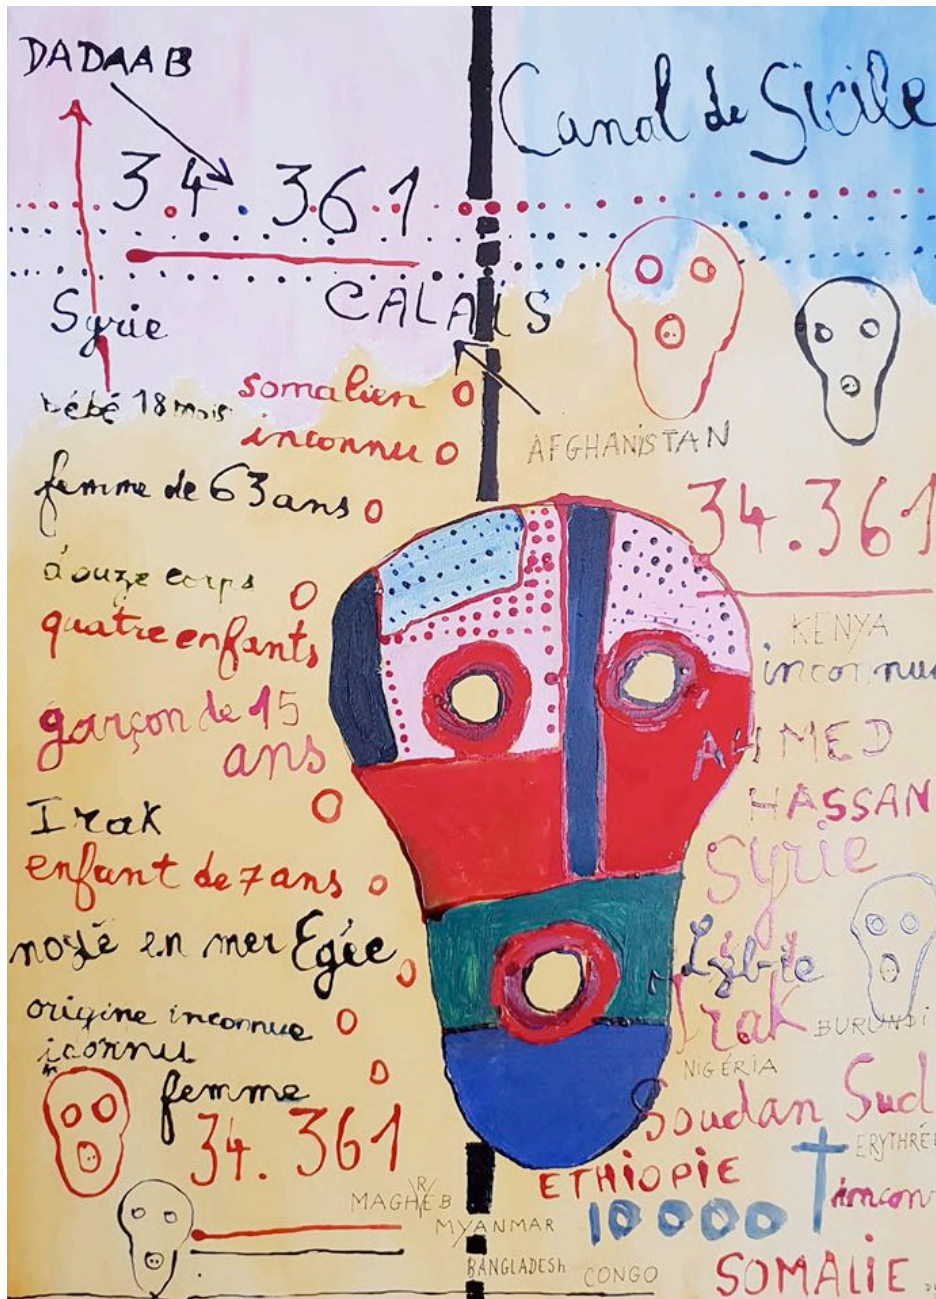 DADAAB
Canal de Sicile
3.4.361
Syrie
CALAIS
bébé 18 mois
somalien
inconnu
AFGHANISTAN
femme de 63 ans
34.361
douze corps
quatre enfants
KENYA
inconnus
garçon de 15
ans
AHMED
HASSAN
Irak
Syrie
enfant de 7 ans
noyé en mer Egée
Lybie
Irak
BURUNDI
origine inconnue
inconnu
NIGÉRIA
femme
34.361
Soudan Sud
ERYTHRÉE
ETHIOPIE
MAGHREB
10000
incon
MYANMAR
BANGLADESh
CONGO
SOMALIE